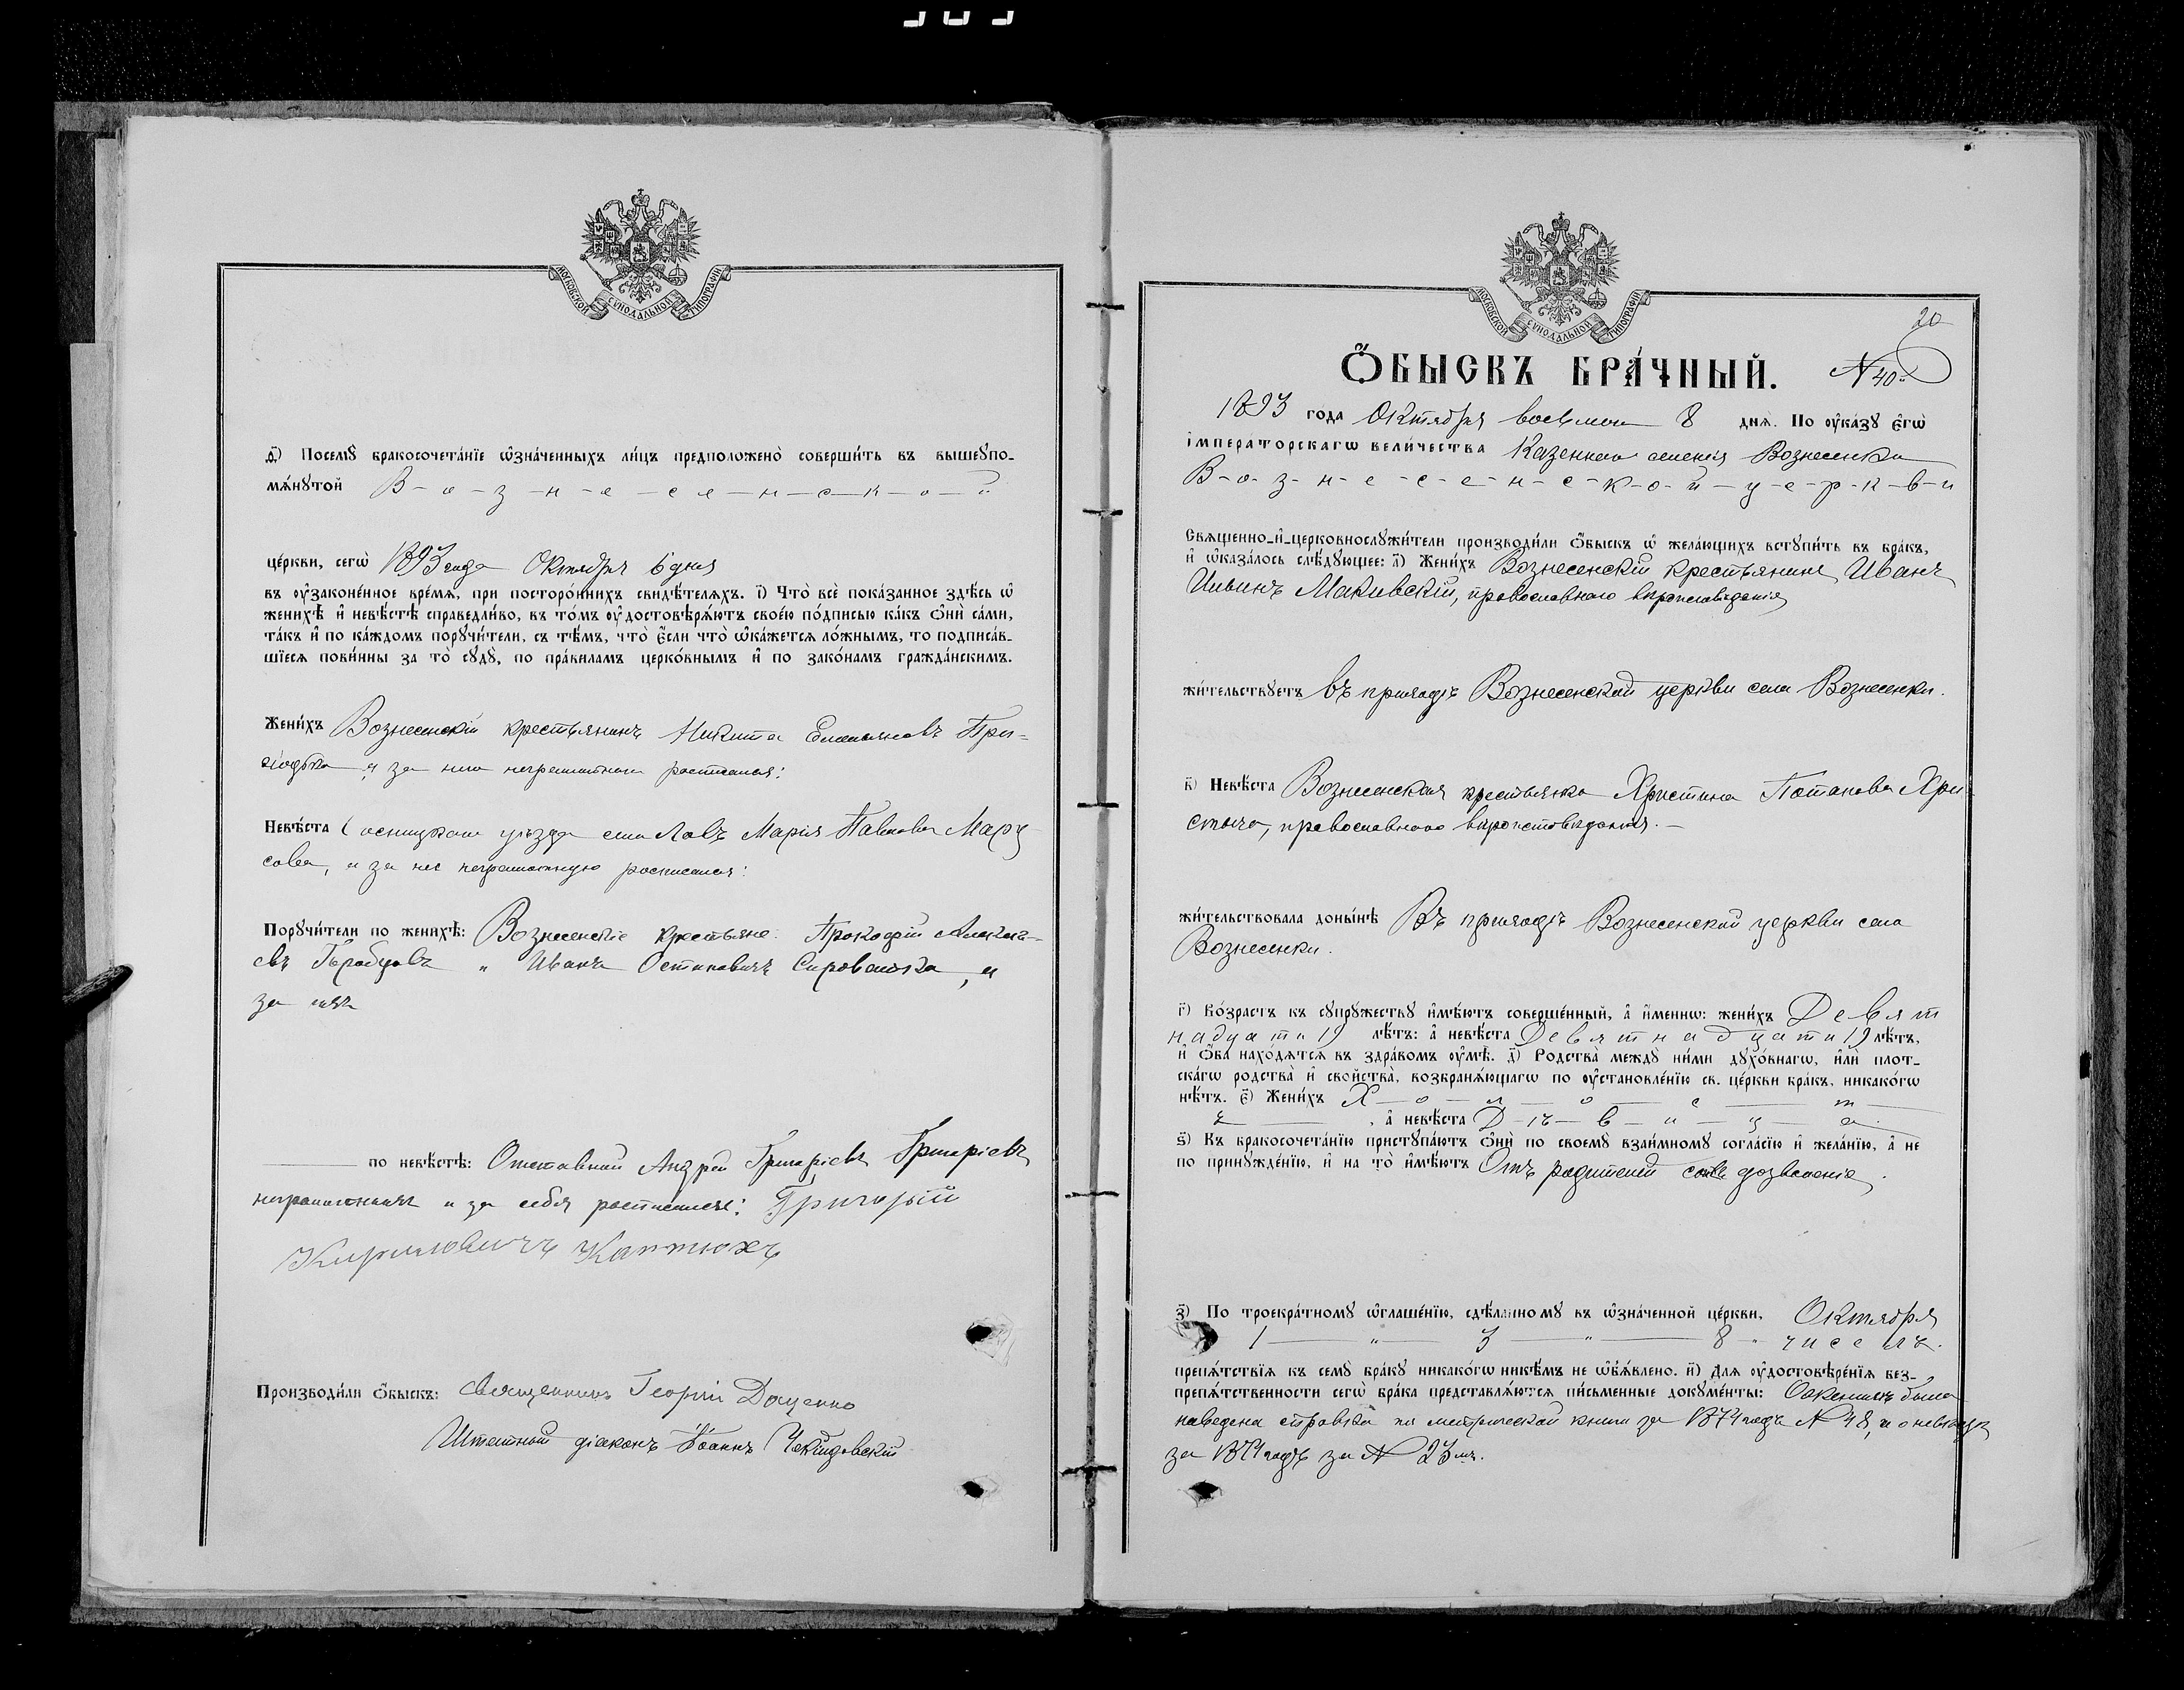 МОСКОВСКОЙ СѴНОДАЛЬНОЙ ТИПОГРАФІИ
ѳ҃) Посемꙋ бракосочета́нїе ѡ҆зна́ченныхъ ли́цъ предположено̀ соверши́ть въ вышеꙋпо-
мѧ́нꙋтой В-о-з-н-е-с-е-н-с-к-о-й
це́ркви, сегѡ̀ 1893 года Октября 6 дня
въ ᲂу҆зако́ненное вре́мѧ, при посторо́ннихъ свидѣ́телѧхъ. і҃) Что̀ всѐ пока́занное здѣ́сь ѡ҆
женихѣ̀ и҆ невѣ́стѣ справедли́во, въ то́мъ ᲂу҆достовѣрѧ́ютъ свое́ю по́дписью ка́къ ѻ҆нѝ са́ми,
та́къ и҆ по ка́ждомъ порꙋчи́тели, съ тѣ́мъ, что̀ є҆́сли что̀ ѡ҆ка́жетсѧ ло́жнымъ, то подписа́в-
шїесѧ пови́нны за то̀ сꙋдꙋ̀, по пра́виламъ церко́внымъ и҆ по зако́намъ гражда́нскимъ.
Жени́хъ Вознесенскій крестьянинъ Никита Емельяновъ При-
ходько а за него неграмотнаго росписался:
Невѣ́ста уѣзда села Марія Павлова Мару
сова, а за нее неграмотную росписался:
Порꙋчи́тели по женихѣ̀: Вознесенскіе крестьяне: Прокофій Алексѣ-
евъ " Иванъ Остаповичъ а
за нихъ
по невѣ́стѣ: Отставной Андрей Григоріевъ Григоріевъ
неграмотныхъ и за себя росписался: Григорый
Кириловичъ Каптюхъ
Производи́ли ѻ҆́быскъ: Священникъ Георгій Доценко
Штатный діаконъ Іоаннъ
МОСКОВСКОЙ СѴНОДАЛЬНОЙ ТИПОГРАФІИ
20
Ѻ҆́БЫСКЪ БРА́ЧНЫЙ. N 40й
1893 го́да Октября восьмого 8 днѧ̀. По ᲂу҆ка́зꙋ є҆гѡ̀
і҆мпера́торскагѡ вели́чества Казеннаго селенія Вознесенки
В-о-з-н-е-с-е-н-с-к-о-й ц-е-р-к-в-и
Свѧщенно-и҆-церковнослꙋжи́тели производи́ли ѻ҆́быскъ ѡ҆ жела́ющихъ встꙋпи́ть въ бра́къ,
и҆ ѡ҆каза́лось слѣ́дꙋющее: а҃) Жени́хъ Вознесенскій крестьянинъ Иванъ
Ильинъ Макивскій, православнаго вѣроисповѣданія
жи́тельствꙋетъ въ приходѣ Вознесенской церкви села Вознесенки.
в҃) Невѣ́ста Вознесенская крестьянка Христина Потапова Хри
стыча, православнаго вѣроисповѣданія. —
жи́тельствовала донынѣ̀ Въ приходѣ Вознесенской церкви села
Вознесенки.
г҃) Во́зрастъ къ сꙋпрꙋжествꙋ и҆мѣ́ютъ соверше́нный, а҆ и҆́меннѡ: жени́хъ Девят
надцати 19 лѣ́тъ: а҆ невѣ́ста Девятнадцати 19 лѣ́тъ,
и҆ ѻ҆́ба нахо́дѧтсѧ въ здра́вомъ ᲂу҆мѣ̀. д҃) Родства̀ междꙋ̀ ни́ми дꙋхо́внагѡ, и҆лѝ плот-
ска́гѡ родства̀ и҆ сво́йства̀, возбранѧ́ющагѡ по ᲂу҆становле́нїю св. це́ркви бра́къ, никако́гѡ
нѣ́тъ. є҃) Жени́хъ Х — о — л — о — с — т —
ъ, а҆ невѣ́ста Д-ѣ-в-и-ц-а.
ѕ҃) Къ бракосочета́нїю пристꙋпа́ютъ ѻ҆нѝ по своемꙋ взаи́мномꙋ согла́сїю и҆ жела́нїю, а҆ не
по принꙋжде́нїю, и҆ на то̀ и҆мѣ́ютъ Отъ родителей своихъ дозволеніе.
з҃) По троекра́тномꙋ ѡ҆глаше́нїю, сдѣ́ланномꙋ въ ѡ҆зна́ченной це́ркви, Октября
1 — " — 3 — " — 8 " чиселъ.
препѧ́тствїѧ къ семꙋ̀ бра́кꙋ никако́гѡ никѣ́мъ не ѡ҆б̾ѧ́влено. и҃) Длѧ ᲂу҆достовѣре́нїѧ без-
препѧ́тственности сегѡ̀ бра́ка представлѧ́ютсѧ пи́сьменные докꙋме́нты: О женихѣ была
наведена справка по метрической книги за 1874 годъ N 48, а о невѣстѣ
за 1874 годъ за N 23 мъ.